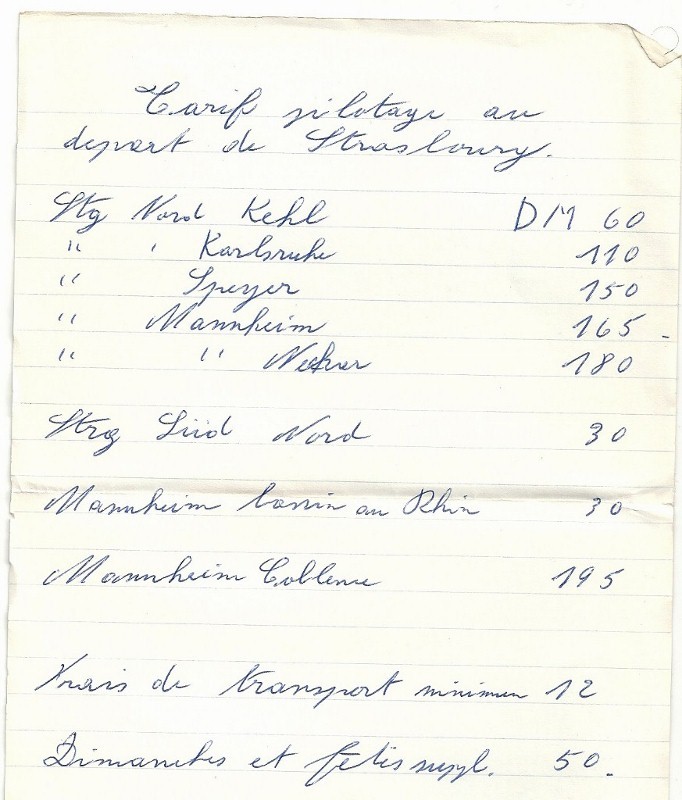 Tarif pilotage au
depart de Strasbourg.
Stg Nord Kehl DM 60
" " Karlsruhe 110
" Speyer 150
" Mannheim 165 -
" " Neckar 180
Strg Süd Nord 30
Mannheim bassin au Rhin 30
Mannheim Coblence 195
Frais de transport minimum 12
Dimanches et fêtes suppl. 50.